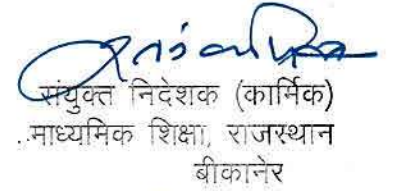 संयुक्त निदेशक (कार्मिक)
..माध्यमिक शिक्षा, राजस्थान
बीकानेर